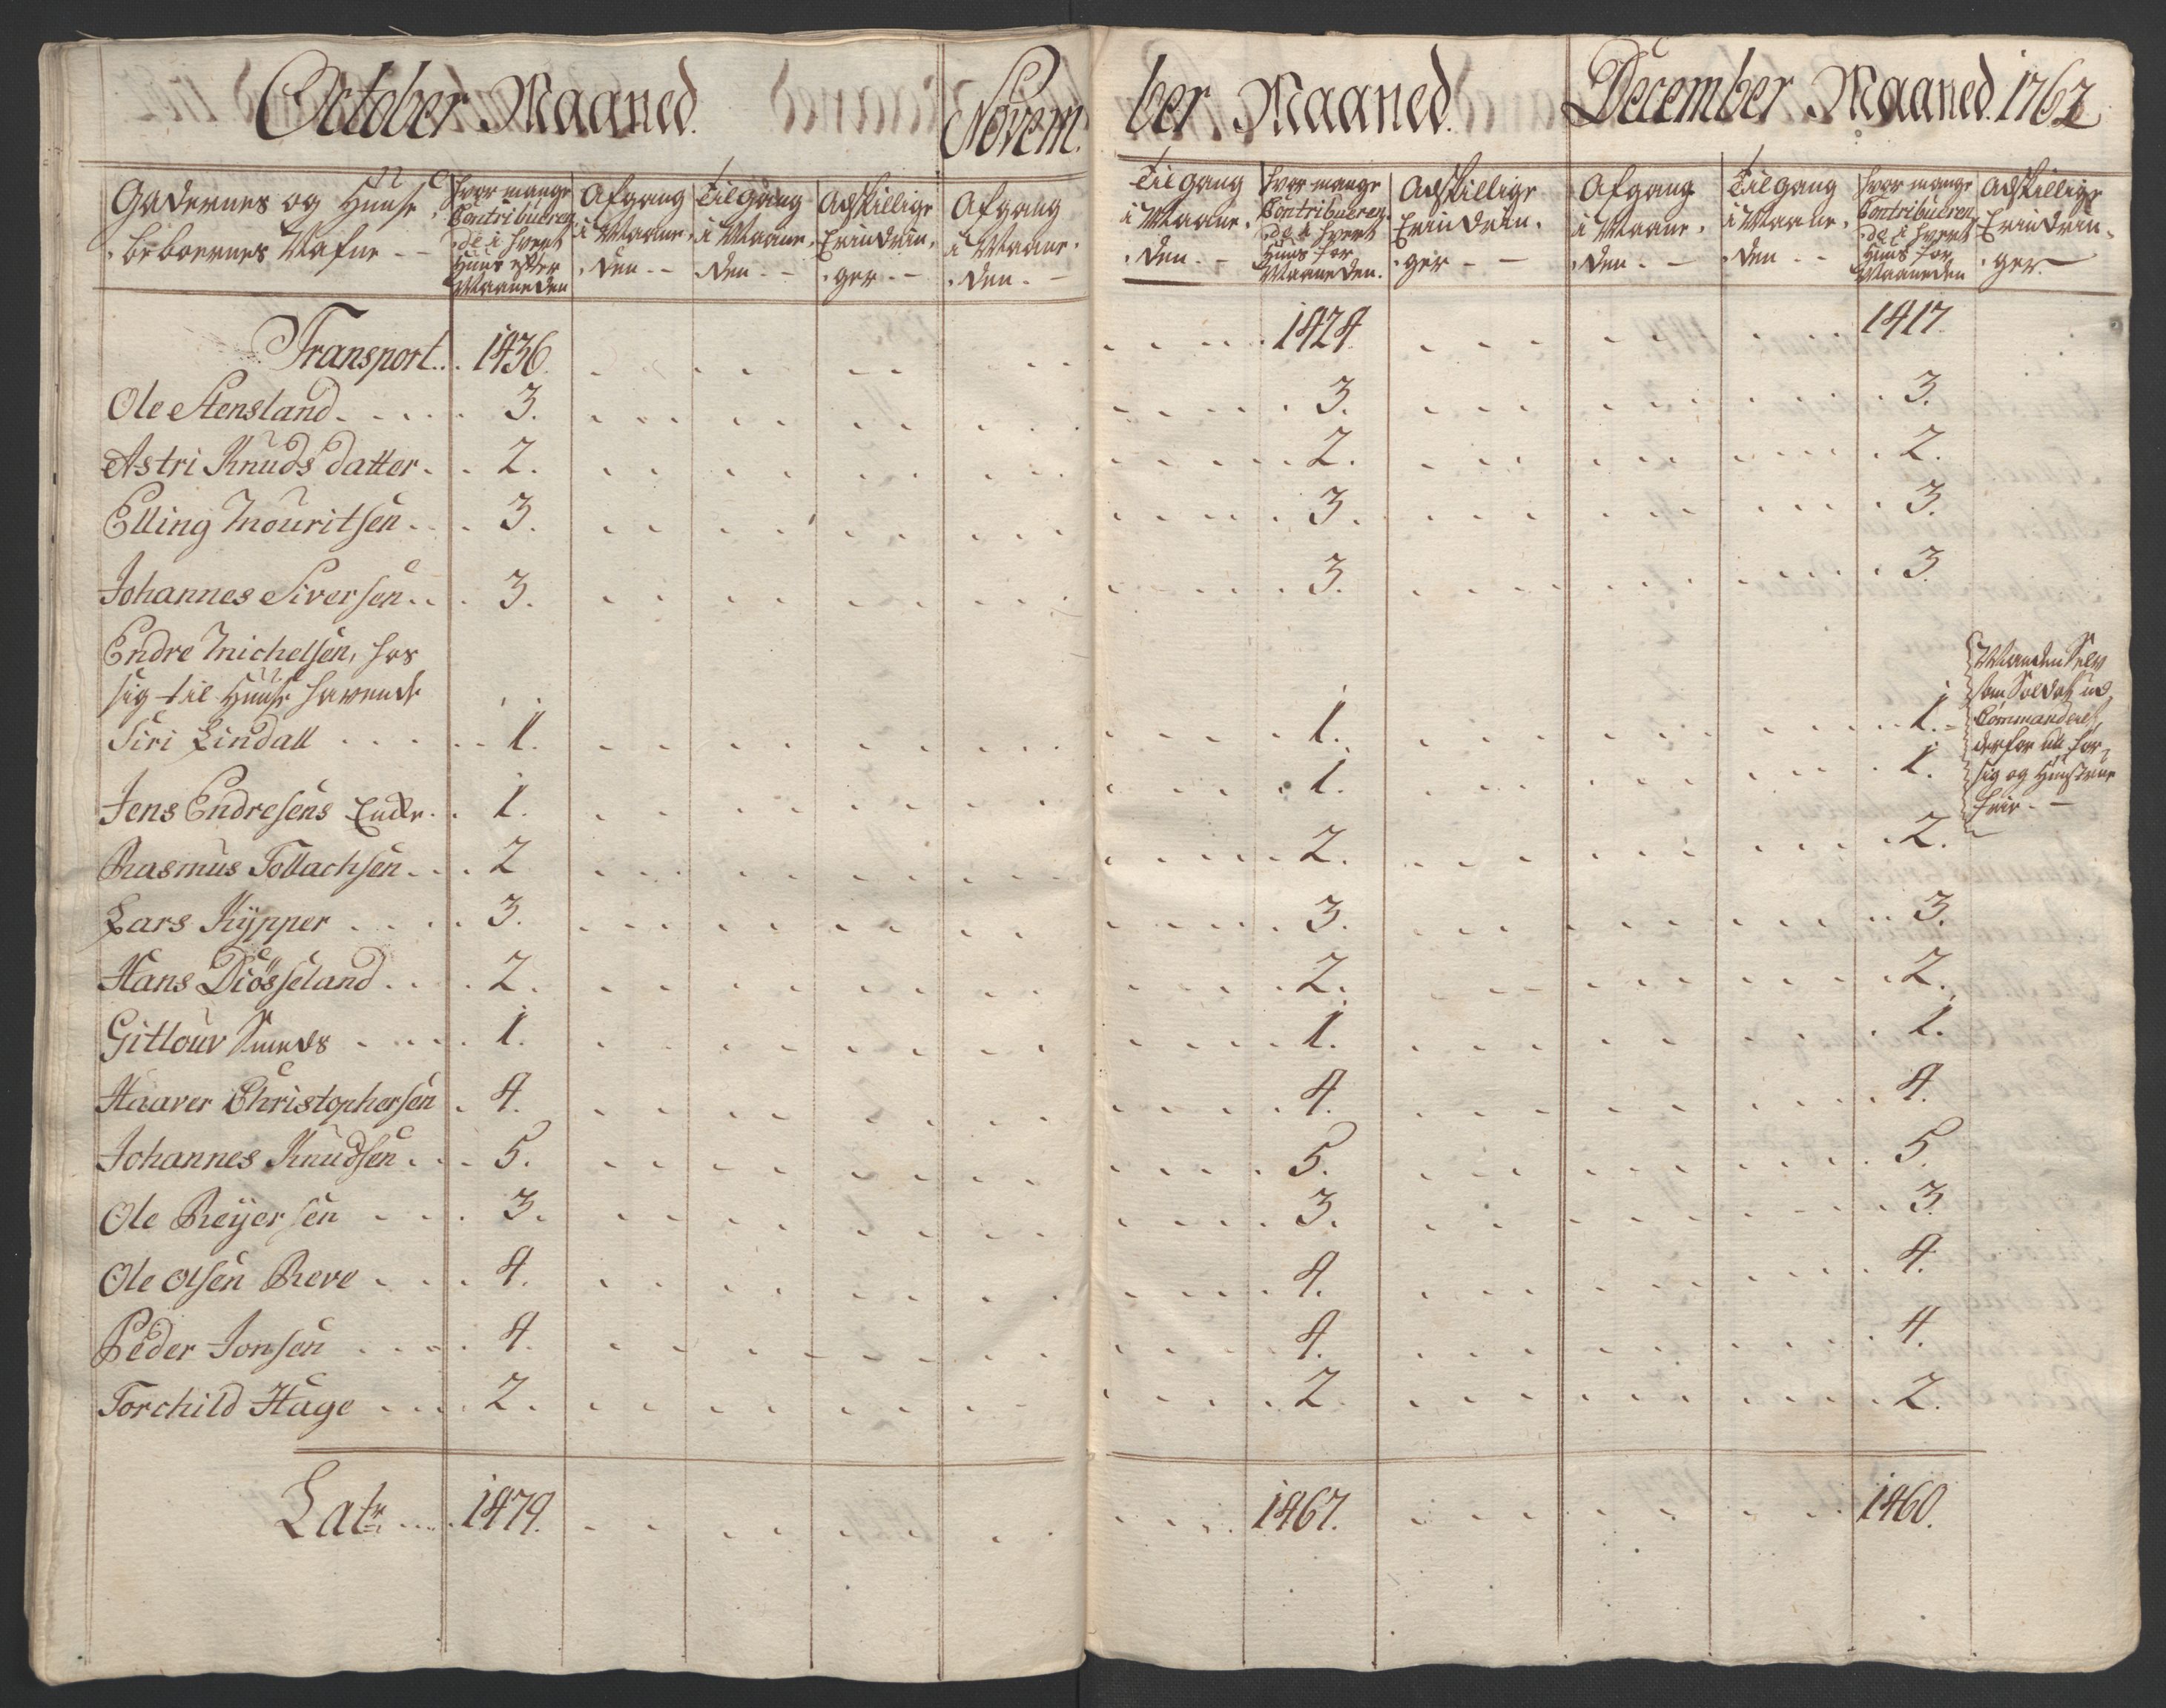 October Maaned. Novem: ber Maaned. December Maaned. 1762
Gadernes og Huuse beboernes Nafne - -
Hvor mange Contribueren de i hvert Huus efter Maaneden
Afgang i Maane den - -
Tilgang i Maane den - -
Adskillige Erindrin ger - -
Afgang i Maane den - -
Tilgang i Maane den - -
Hvor mange Contribueren de i hvert Huus for Maaneden.
Adskillige Erindrin ger - -
Afgang i Maane den - -
Tilgang i Maane den - -
Hvor mange Contribueren de i hvert Huus for Maaneden
Adskillige Erindrin ger. -
Transport... 1436. 1424. 1417.
Ole Stensland 3. 3. 3.
Astri Knuds datter 2. 2. 2.
Elling Mouritsen 3. 3. 3.
Johannes Siversen 3. 3. 3.
Endre Michelsen, hos
sig til Huuse havende
Siri Lindall 1. 1. 1.
Manden Selv
som Soldat ud
Commanderet,
derfor ud for
sig og Hustrue
frie. -
Jens Endresens Enke 1. 1. 1.
Rasmus Tollachsen 2 2. 2.
Lars Kÿpper 3. 3. 3.
Hans Diösseland 2. 2. 2.
Gitlour Smeds 1. 1. 1.
Haaver Christophersen 4. 4. 4.
Johannes Knudsen 5. 5. 5.
Ole Reÿersen 3. 3. 3.
Ole Olsen Reve 4. 4. 4.
Peder Jonsen 4. 4. 4.
Torchild Hage 2. 2. 2.
Latr. 1479. 1467. 1460.